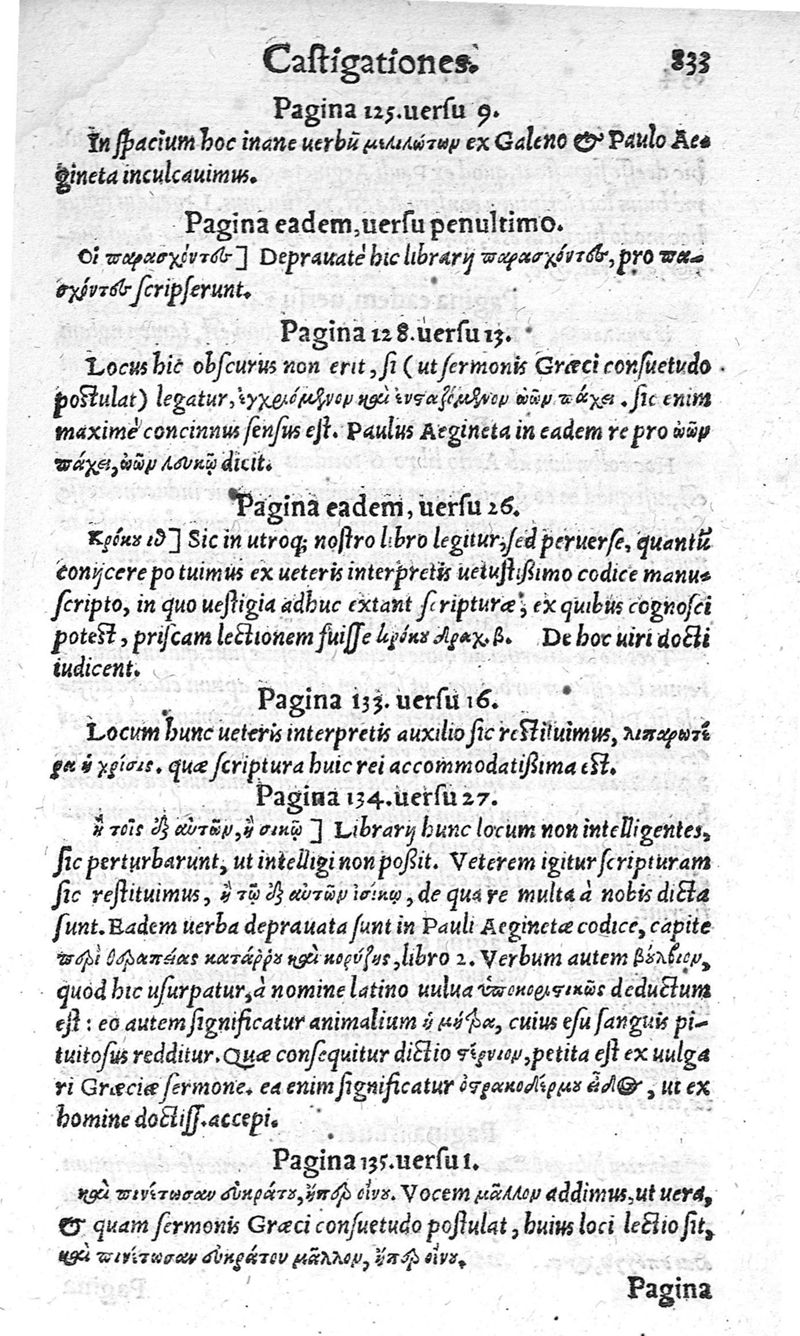 Castigationes. 833
Pagina 125. uersu 9.
In spacium hoc inane uerbũ μελιλώτων ex Galeno & Paulo Ae-
gineta inculcauimus.
Pagina eadem, uersu penultimo.
Οἱ παρασχόντες] Deprauatè hic librarij παρασχόντες, pro πα-
σχόντες scripserunt.
Pagina 128. uersu 13.
Locus hic obscurus non erit, si (ut sermonis Græci consuetudo
postulat) legatur, ἐγχριόμενον καὶ ἐνσταζόμενον ὠῶν πάχει. sic enim
maximè concinnus sensus est. Paulus Aegineta in eadem re pro ὠῶν
πάχει, ὠῶν λευκῷ dicit.
Pagina eadem, uersu 26.
Κρόκου ιδ] Sic in utroq; nostro libro legitur, sed peruerse, quantũ
conijcere potuimus ex ueteris interpretis uetustißimo codice manu-
scripto, in quo uestigia adhuc extant scripturæ, ex quibus cognosci
potest, priscam lectionem fuisse κρόκου δραχ. β. De hoc uiri docti
iudicent.
Pagina 133. uersu 16.
Locum hunc ueteris interpretis auxilio sic restituimus, λιπαρωτέ
ρα ἡ χρίσις. quæ scriptura huic rei accommodatißima est.
Pagina 134. uersu 27.
ἢ τοῖς ἐξ αὐτῶν, ἢ σικῷ] Librarij hunc locum non intelligentes,
sic perturbarunt, ut intelligi non poßit. Veterem igitur scripturam
sic restituimus, ἢ τῷ ἐξ αὐτῶν ἰσίκῳ, de qua re multa à nobis dicta
sunt. Eadem uerba deprauata sunt in Pauli Aeginetæ codice, capite
περὶ θεραπείας κατάρρου καὶ κορύζης, libro 2. Verbum autem βούλβιον,
quod hic usurpatur, à nomine latino uulua ὑποκοριστικῶς deductum
est: eo autem significatur animalium ἡ μήτρα, cuius esu sanguis pi-
tuitosus redditur. Quæ consequitur dictio τέρνιον, petita est ex uulga
ri Græciæ sermone. ea enim significatur ὀστρακοδέρμου εἶδος, ut ex
homine doctiss. accepi.
Pagina 135. uersu 1.
καὶ πινέτωσαν εὐκράτου, ἤπερ οἴνου. Vocem μᾶλλον addimus, ut uera,
& quam sermonis Græci consuetudo postulat, huius loci lectio sit,
καὶ πινέτωσαν εὐκράτου μᾶλλον, ἤπερ οἴνου.
Pagina